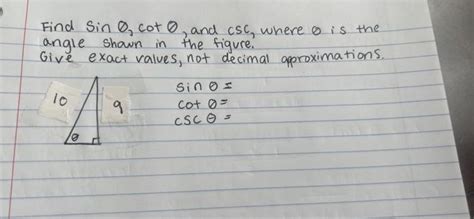 Find Sin θ, cot θ, and csc, where θ is the
angle shown in the figure.
Give exact values, not decimal approximations.
sin θ =
10
9
cot θ =
csc θ =
θ